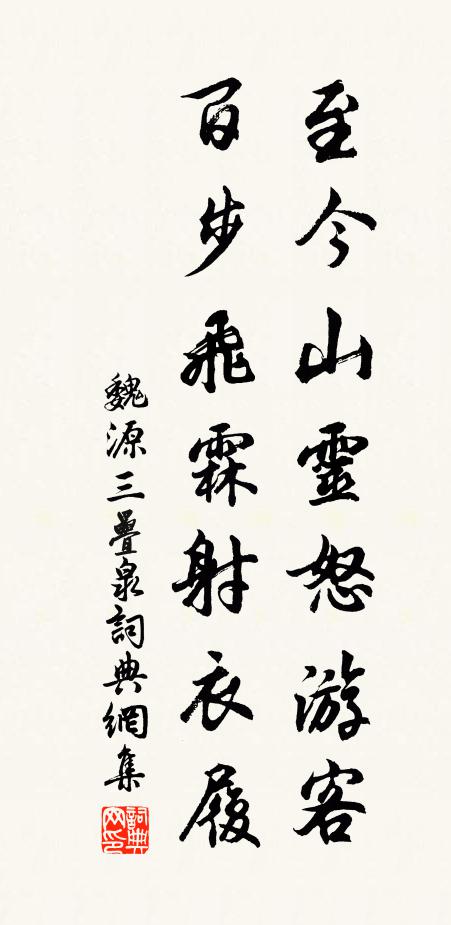 至今山靈怒游客
百步飛霖射衣履
魏源三疊泉詞典網集
詞典網印